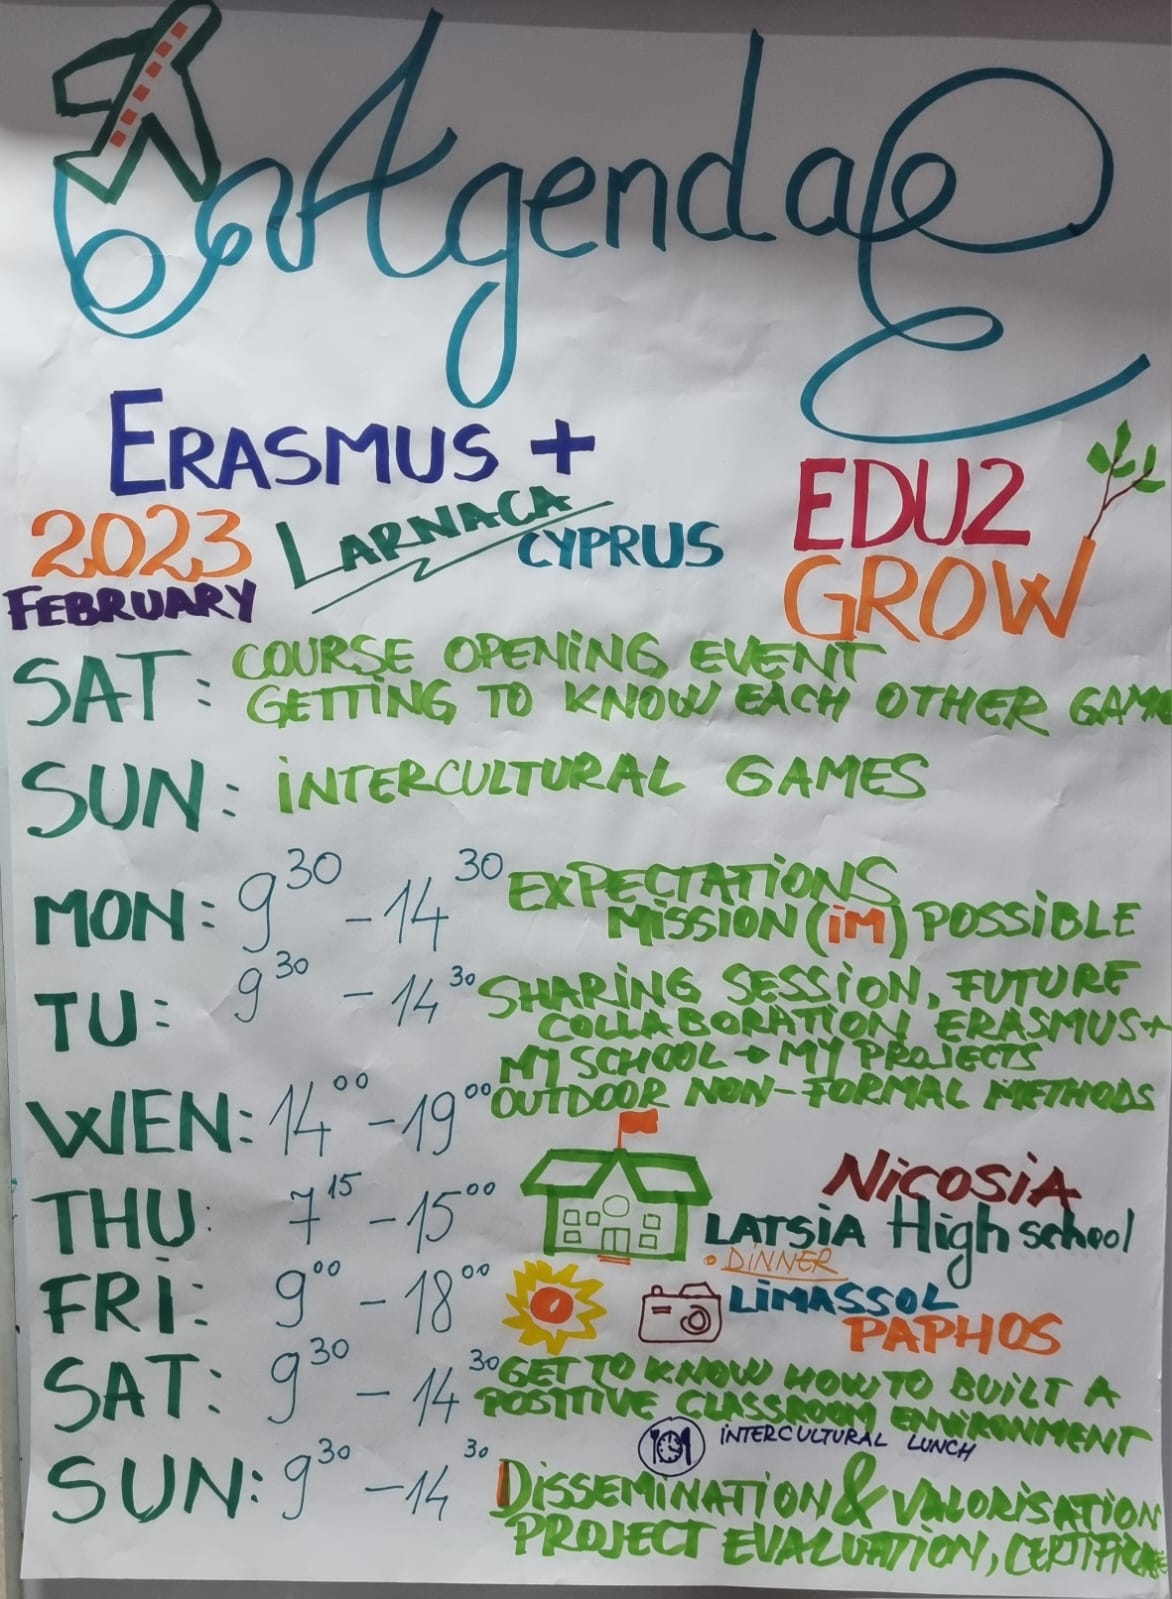 Agenda
ERASMUS +
2023 LARNACA CYPRUS
FEBRUARY
EDU2
GROW
SAT: COURSE OPENING EVENT
GETTING TO KNOW EACH OTHER GAME
SUN: INTERCULTURAL GAMES
MON: 9³⁰ - 14³⁰ EXPECTATIONS
MISSION (IM) POSSIBLE
TU: 9³⁰ - 14³⁰ SHARING SESSION, FUTURE
COLLABORATION, ERASMUS+
MY SCHOOL → MY PROJECTS
WEN: 14⁰⁰ - 19⁰⁰ OUTDOOR NON-FORMAL METHODS
THU: 7¹⁵ - 15⁰⁰ NICOSIA
LATSIA High school
• DINNER
FRI: 9⁰⁰ - 18⁰⁰ LIMASSOL
PAPHOS
SAT: 9³⁰ - 14³⁰ GET TO KNOW HOW TO BUILT A
POSITIVE CLASSROOM ENVIRONMENT
INTERCULTURAL LUNCH
SUN: 9³⁰ - 14³⁰ DISSEMINATION & VALORISATION
PROJECT EVALUATION,